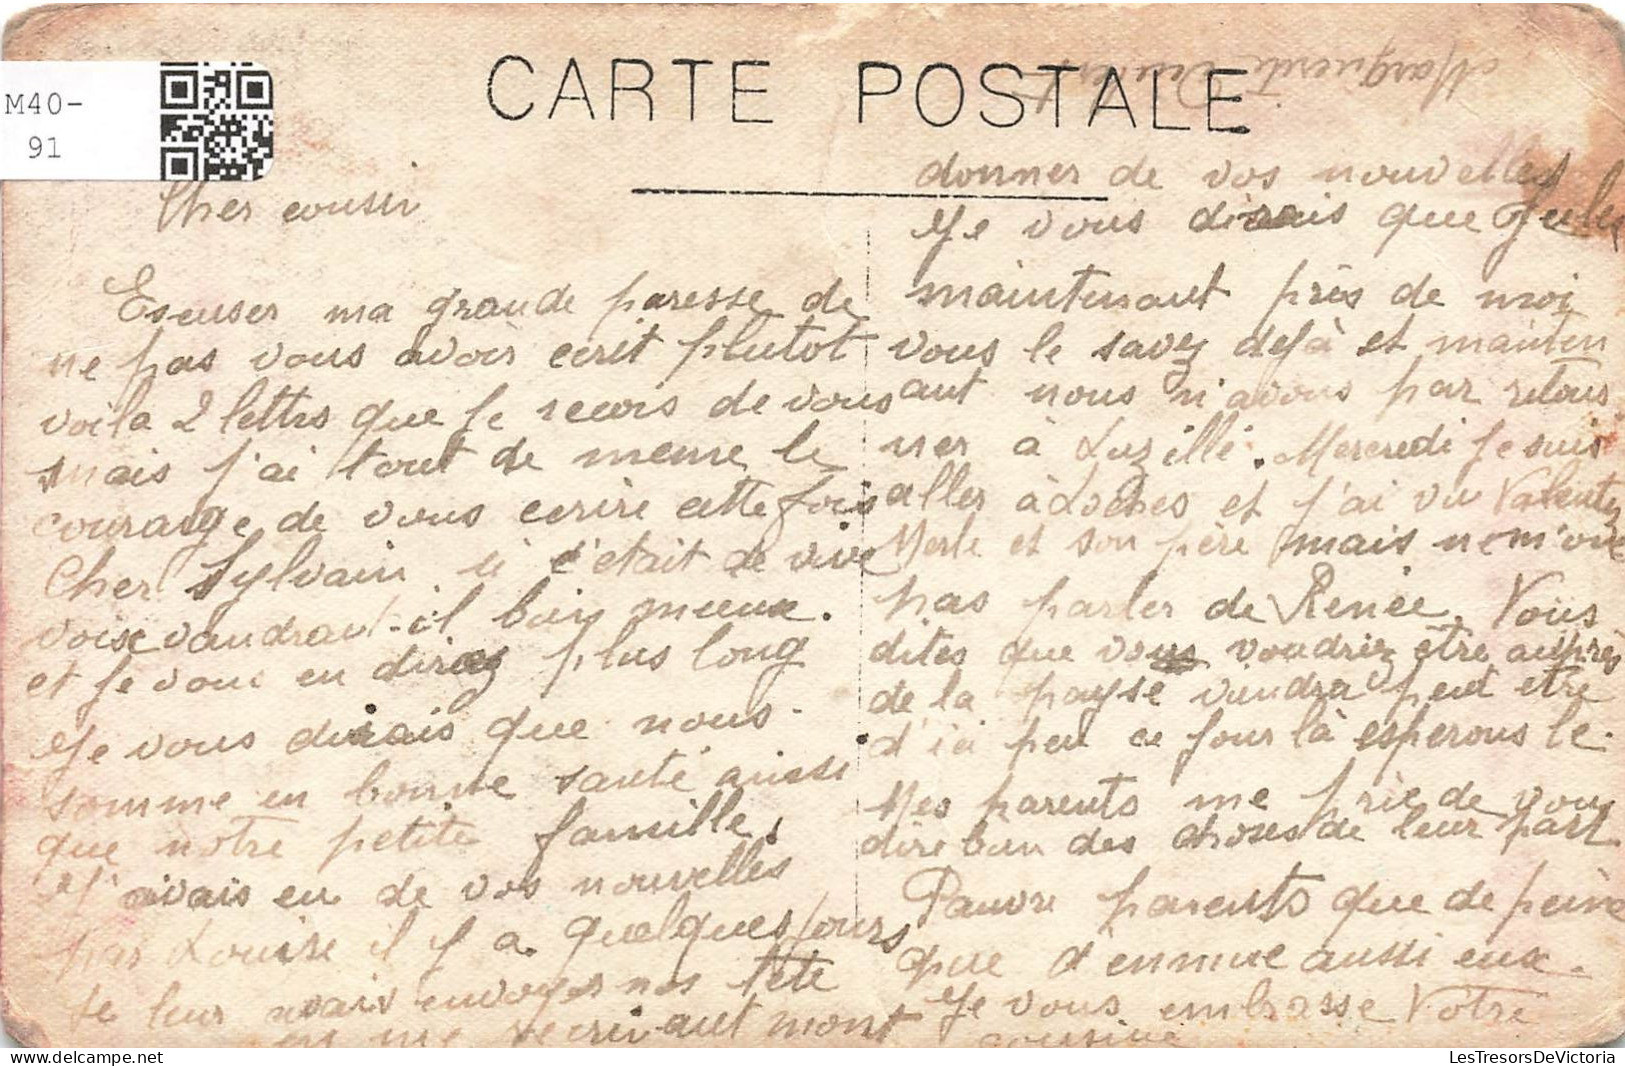 M40-
91
CARTE POSTALE
Marguerite
Cher cousin
Escuser ma grande paresse de
ne pas vous avoir ecrit plutot
voila 2 lettres que je recois de vous
mais j'ai tout de meme le
courage de vous ecrire cette fois
Cher Sylvain si c'etait de vive
voix vaudrait-il bien mieux.
et je vous en direz plus long
Je vous dirais que nous
somme en bonne santé aussi
que notre petite famille.
J'avais eu de vos nouvelles
par Louise il y a quelques jours
je leur avais envoyer nos tête
en me recrivant mont
donner de vos nouvelles
Je vous dirais que Jules
maintenant près de moi
vous le savez déjà et mainten
ant nous n'avons par retour
ner à Luzillé. Mercredi je suis
aller à Loches et j'ai vu Valentin
Merle et son père mais ne m'ont
pas parler de Renée. Vous
dites que vous voudriez être auprès
de la payse viendra peut etre
d'ici peu ce jour là esperons le.
Mes parents me prie de vous
dire bien des choses de leur part
Pauvre parents que de peine
que d'ennuie aussi eux.
Je vous embrasse Votre
cousine
LesTresorsDeVictoria